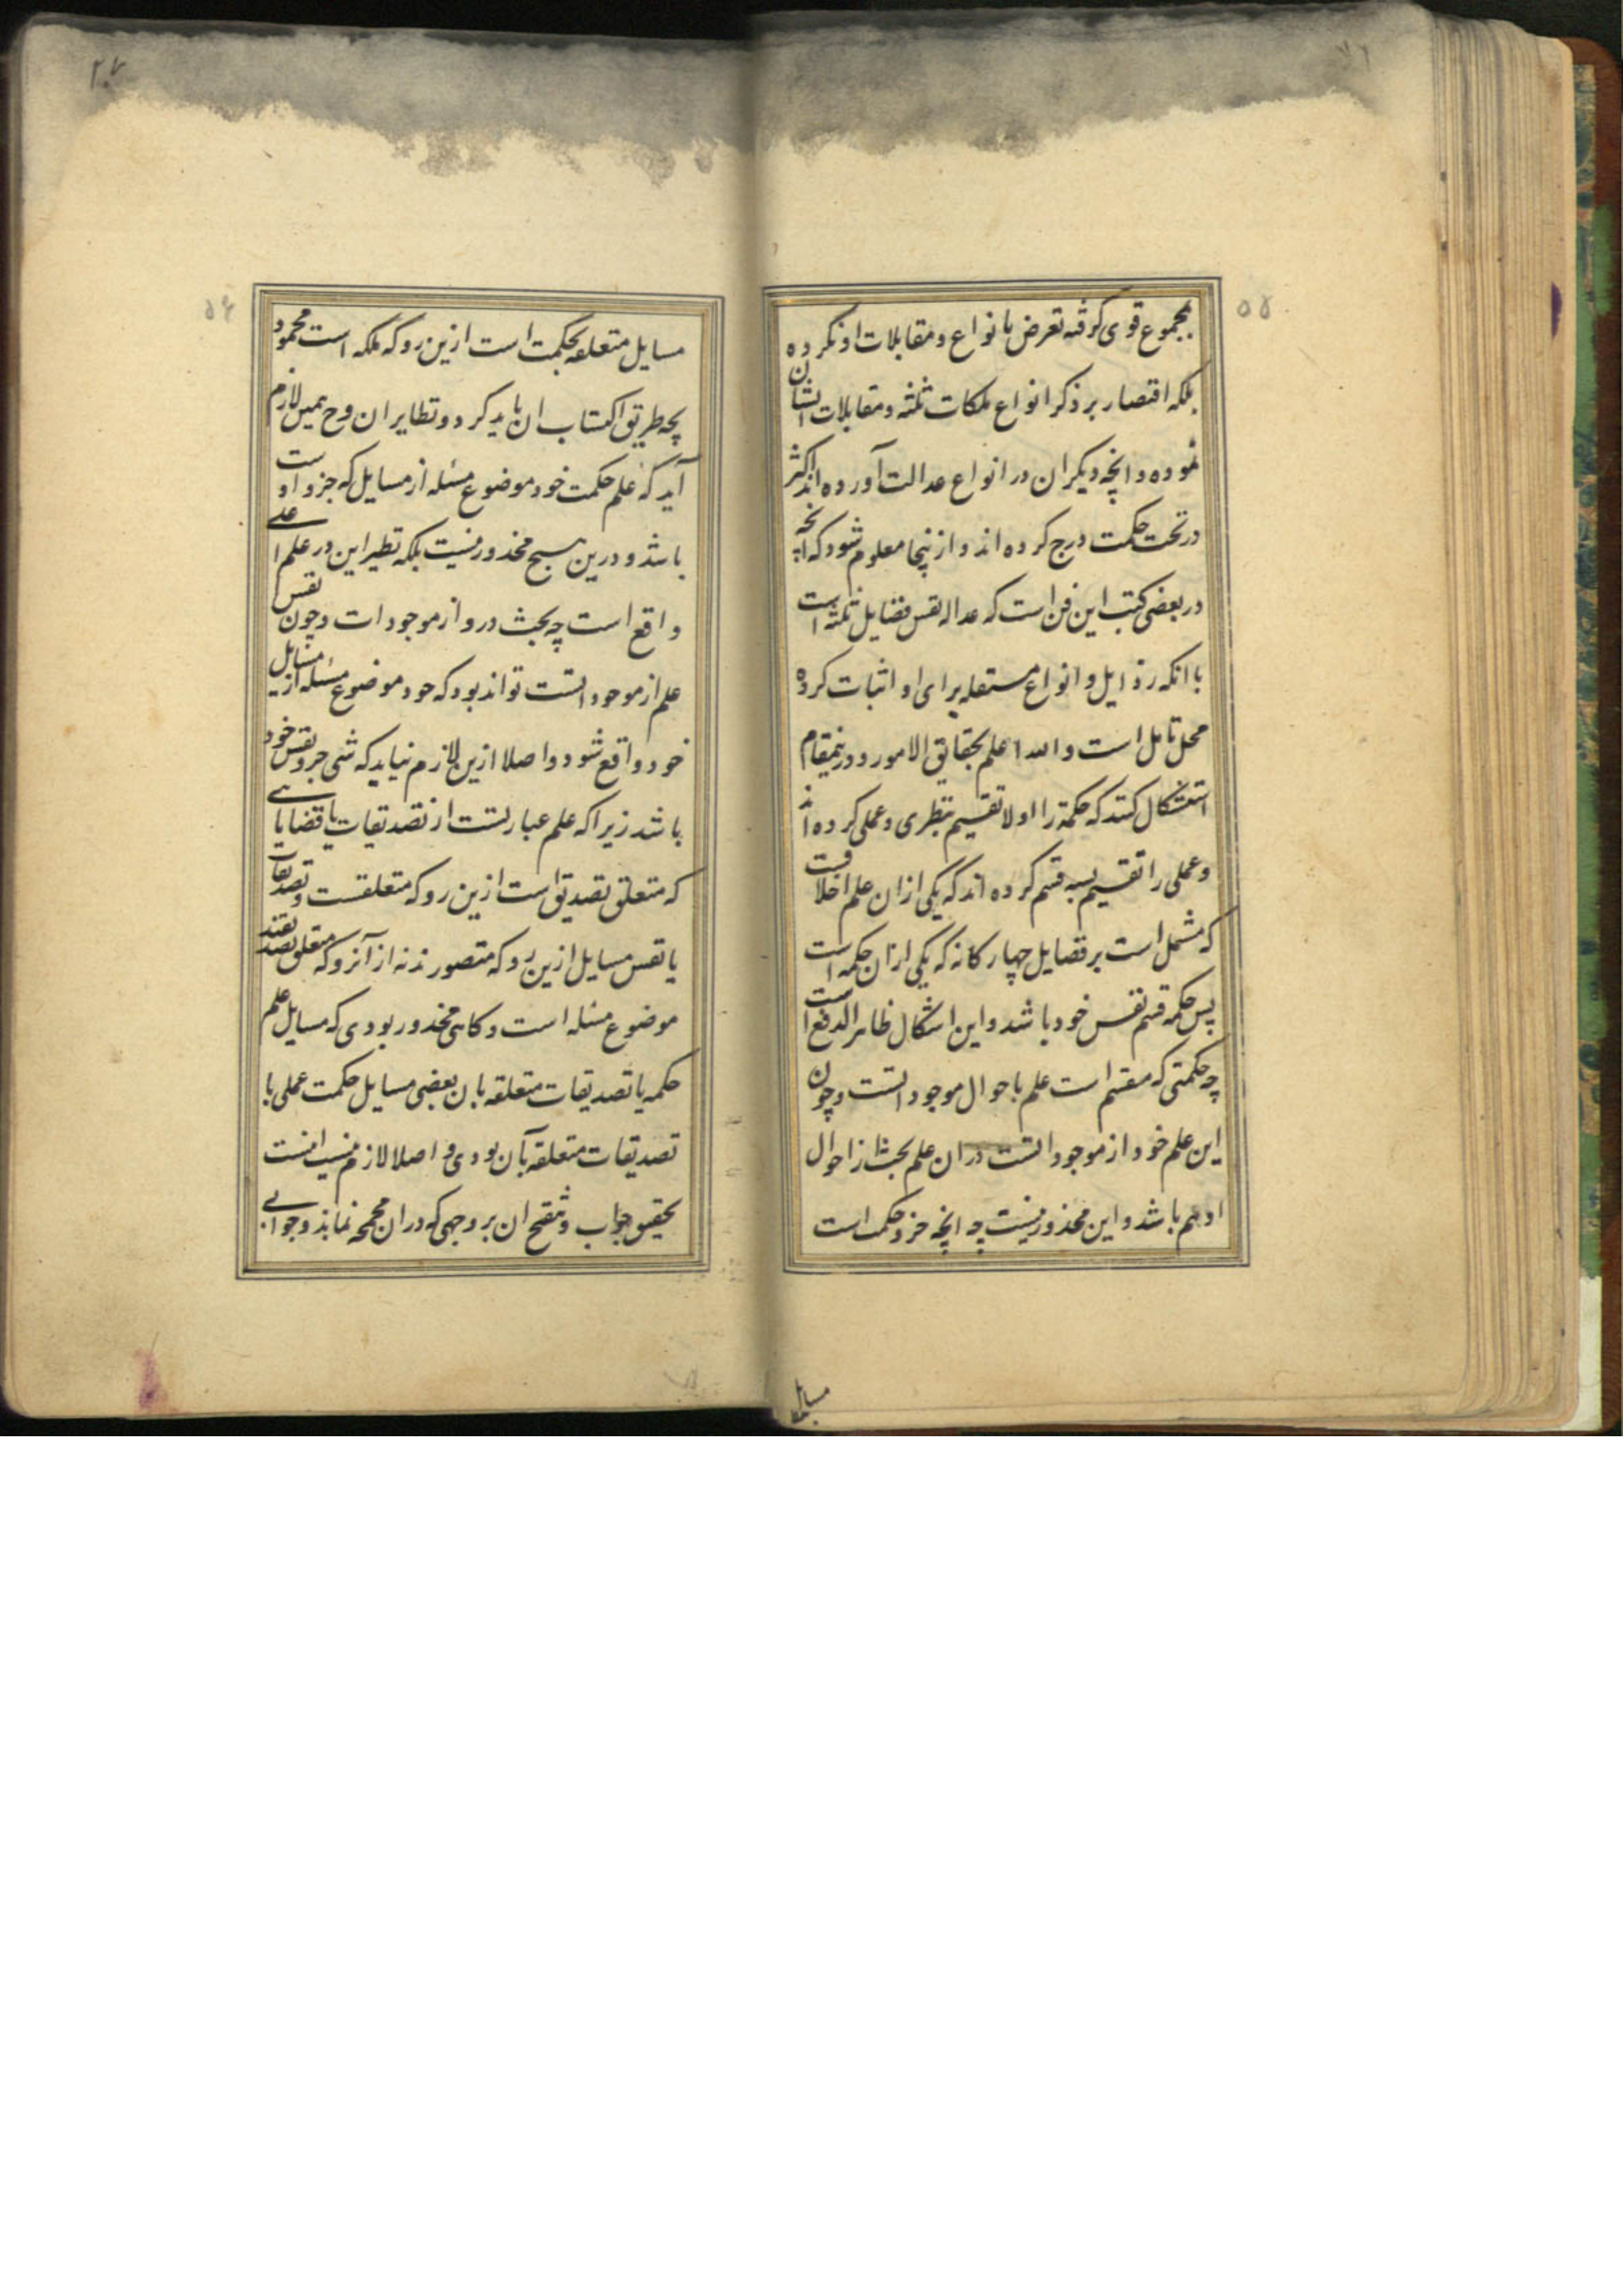 ۵۵
بمجموع قوی گرفته تعرض بانواع و مقابلات او نکرده
بلکه اقتصار بر ذکر انواع ملکات ثلثه و مقابلات ایشان
نموده و انچه دیکران در انواع عدالت آورده اند اکثر
در تحت حکمت درج کرده اند و ازینجا معلوم شود که انچه
در بعضی کتب این فن است که عداله نفس فضایل ثلثه است
با انکه رذایل و انواع مستقله برای او اثبات کرده
محل تامل است و الله اعلم بحقایق الامور و درینمقام
استشکال کنند که حکمة را اولا تقسیم بنظری و عملی کرده اند
و عملی را تقسیم بسه قسم کرده اند که یکی ازان علم اخلاقست
که مشتمل است بر فضایل چهارکانه که یکی ازان حکمه است
پس حکمة قسم نفس خود باشد و این اشکال ظاهر الدفع است
چه حکمتی که مقسم است علم باحوال موجوداتست و چون
این علم خود از موجوداتست دران علم بحث از احوال
او هم باشد و این محذور نیست چه انچه جزو حکمت است
مسایل
۵۶
مسایل متعلقه بحکمت است ازین رو که ملکه است محمود
بچه طریق اکتساب ان باید کرد و نظایر ان وح همین لازم
آید که علم حکمت خود موضوع مسئله از مسایل که جزو اوست
باشد و درین هیچ محذور نیست بلکه نظیر این در علم اعلی
واقع است چه بحث درو از موجودات و چون نفس
علم از موجوداتست تواند بود که خود موضوع مسئله از مسایل
خود واقع شود و اصلا ازین لازم نیاید که شی جزو نفس خود
باشد زیرا که علم عبارتست از تصدیقات یا قضایایی
که متعلق تصدیق است ازین رو که متعلقست و تصدیقات
یا نفس مسایل ازین رو که متصورند نه از آنرو که متعلق تصدیقند
موضوع مسئله است و کاهی محذور بودی که مسایل علم
حکمه یا تصدیقات متعلقه بان بعضی مسایل حکمت عملی یا
تصدیقات متعلقه بآن بودی و اصلا لازم نیست اینست
تحقیق جواب و تنقیح ان بر وجهی که دران مجمجه نماند و جوابی